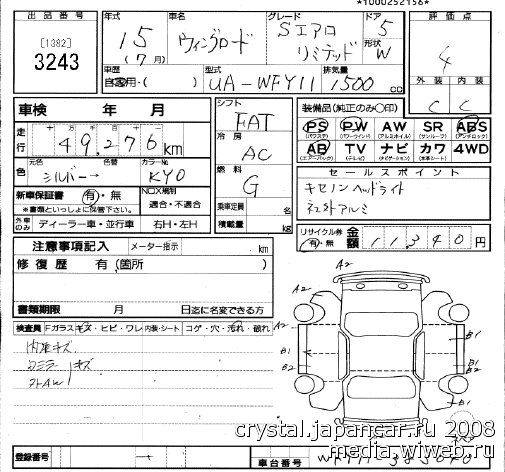 *1000252156*
出品番号 [1382] 3243
年式 15 (7月) 車名 ウィングロード グレード Sエアロ リミテッド ドア 5 形状 W 評価点 4
車歴 自家用・( ) 型式 UA-WFY11 排気量 1500 CC 外装 C 内装 C
車検 年 月 シフト FAT 装備品(純正のみ○印)
走行 十 万 千 百 十 49,276 km 冷房 AC PS (パワステ) PW (パワーウインド) AW (アルミホイル) SR (サンルーフ) ABS (アンチロック)
AB (エアーバック) TV (テレビ) ナビ (ナビゲーション) カワ (本革シート) 4WD
色 元色 シルバー → 色替 カラーNo KY0 燃料 G セールスポイント
キセノンヘッドライト
社外アルミ
新車保証書 有・無 ※書類といっしょに保管下さい。 NOX規制 適合・不適合 乗車定員 名
外車のみ ディーラー車・並行車 右H・左H 積載量 kg リサイクル券 有・無 金額 11,340 円
注意事項記入 メーター指示 km
修復歴 有(箇所 )
書類期限 月 日迄に名変できる方
検査員 Fガラス キズ・ヒビ・ワレ 内装・シート コゲ・穴・汚れ・破れ
内装キズ
ルミラーキズ
A2
A2
B1
B2
B1
B2
A2
crystal.japancar.ru 2008
media.wiweb.ru
登録番号 車台番号 WFY11